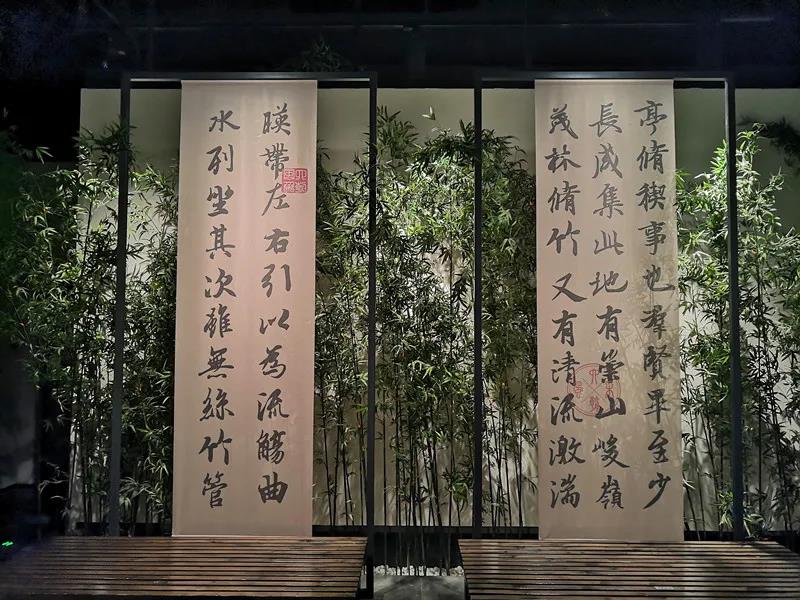 亭脩禊事也群賢畢至少
長咸集此地有崇山峻嶺
茂林脩竹又有清流激湍
暎帶左右引以為流觴曲
水列坐其次雖無絲竹管